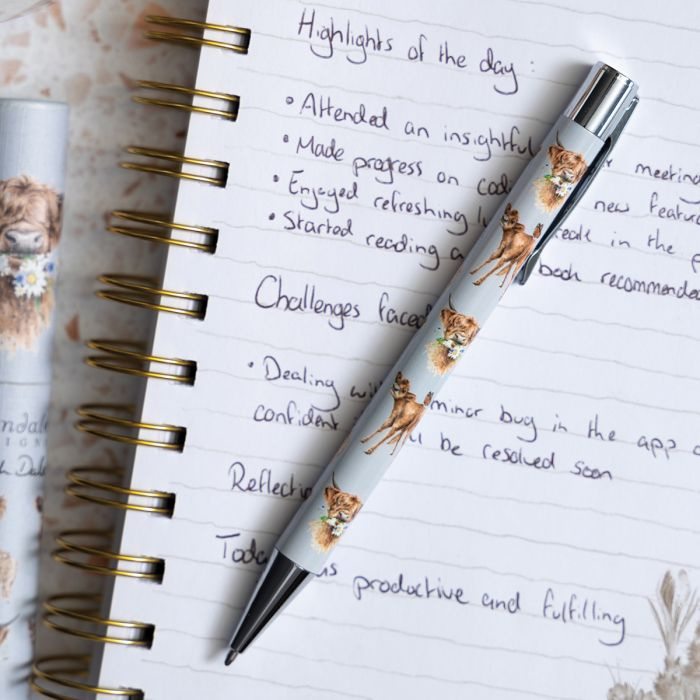 Highlights of the day :
• Attended an insightful meeting
• Made progress on new featur
• Enjoyed refreshing in the p
• Started reading a book recommende
Challenges faced
• Dealing minor bug in the app
confident be resolved soon
productive and fulfilling